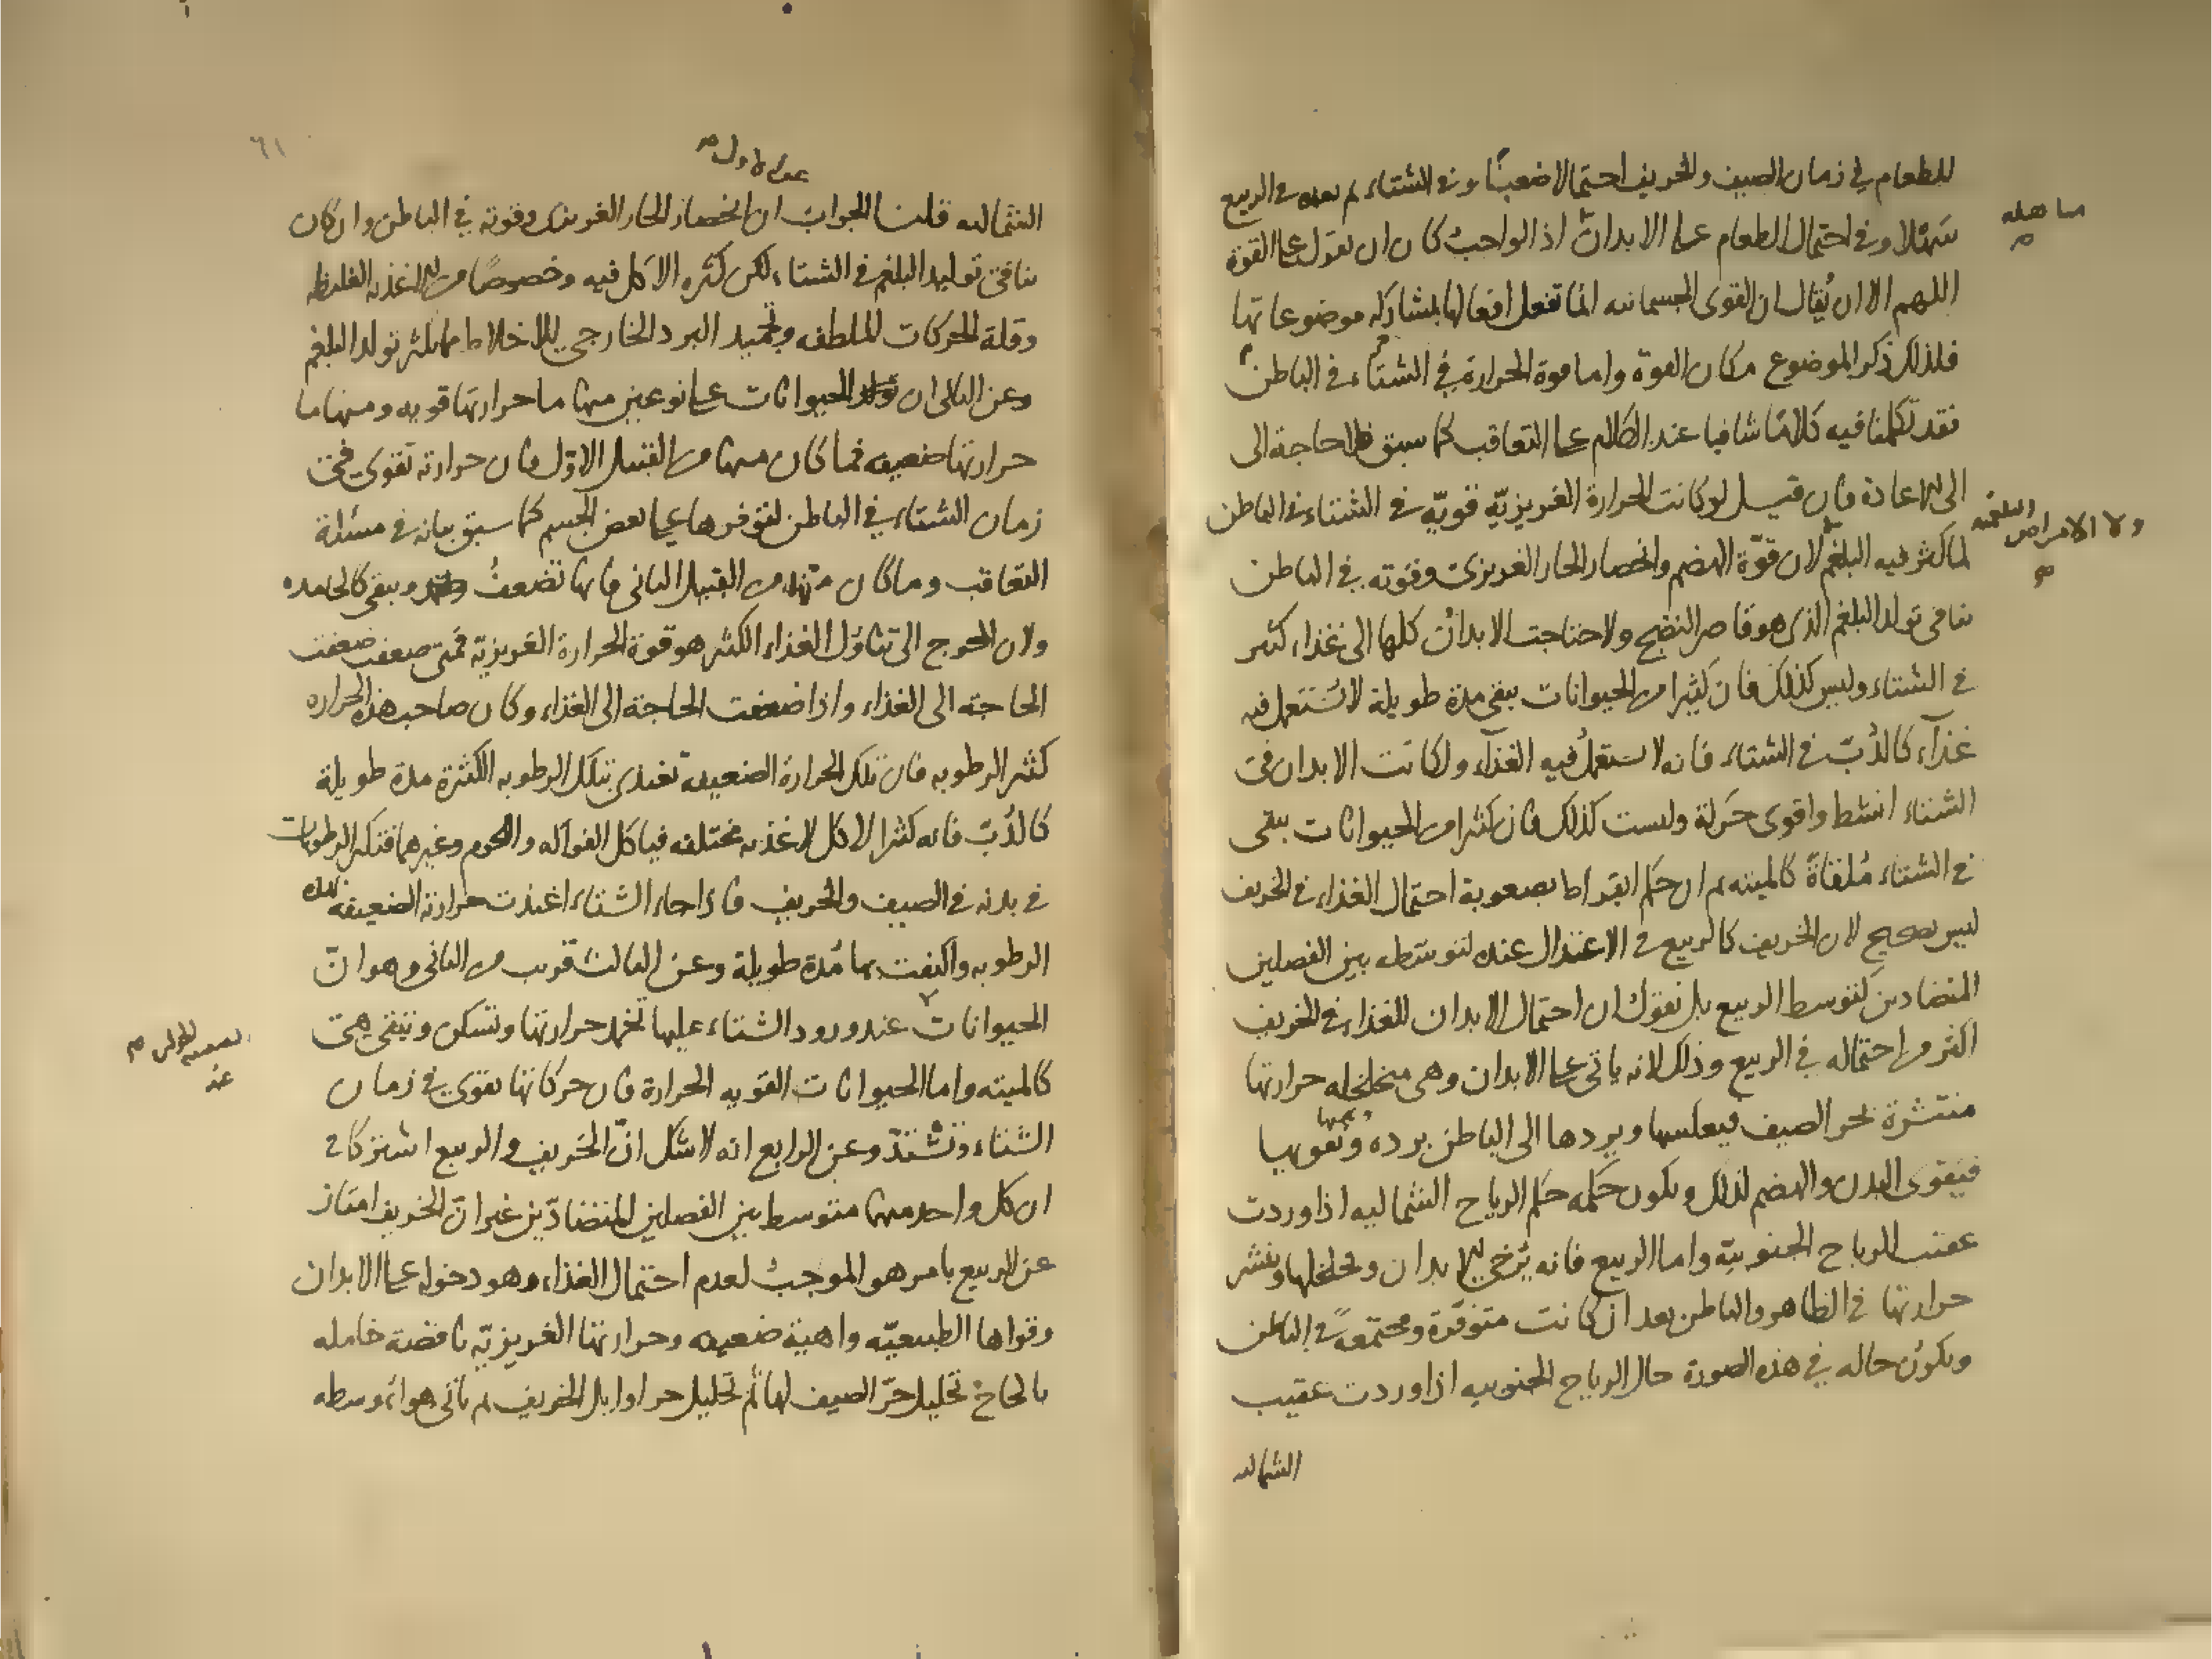 للطعام في زمان الصيف والخريف احتمالا ضعبًا وفي الشتاء ثم بعده في الربيع
سَهْلا وفي احتمال الطعام على الابدان اذ الواجب كان ان نقول على القوة
مساهله
اللهم الا ان يُقال ان القوى الجسمانيه انما تفعل افعالها بمشاركه موضوعاتها
فلذلك ذكر الموضوع مكان القوة واما قوة الحرارة في الشتاء في الباطن
فقد تكلمنا فيه كلامًا شافيا عند الكلام على التعاقب كما سبق فلا حاجة الى
الى الاعادة فان قيل لو كانت الحرارة الغريزيّة قويّة في الشتاء في الباطن
ولا الامراض البلغميه
لما كثر فيه البلغم لان قوّة الهضم وانحصار الحار الغريزى وقوته في الباطن
ينافى تولد البلغم الذى هو قاصر النضج ولاحتاجت الابدان كلها الى غذاء كثير
في الشتاء وليس كذلك فان كثيرا من الحيوانات يبقى مدة طويلة لا تستعمل فيه
غذآء كالدُبّ في الشتاء فانه لا يستعمل فيه الغذآء ولكانت الابدان في
الشتاء انشط واقوى حَركة وليست كذلك فان كثيرا من الحيوانات يبقى
في الشتاء مُلقاةً كالميته ثم ان حكم ابقراط بصعوبة احتمال الغذاء في الخريف
ليس بصحيح لان الخريف كالربيع في الاعتدال عنده لتوسّطه بين الفصلين
المتضادين كتوسط الربيع بل نقول ان احتمال الابدان للغذاء في الخريف
اكثر من احتماله في الربيع وذلك لانه ياتى على الابدان وهى متخلخله حرارتها
منتشرة بحر الصيف فيعكسها ويردها الى الباطن برده ويقويها
فيقوى البدن والهضم لذلك ويكون حكمه حكم الرياح الشماليه اذا وردت
عقيب الرياح الجنوبيّة واما الربيع فانه يُرخى الابدان ويخلخلها وينشر
حرارتها في الظاهر والباطن بعد ان كانت متوفرة ومجتمعةً في الباطن
ويكون حاله في هذه الصورة حال الرياح الجنوبيه اذا وردت عقيب
الشماليه
٦١
عن الاول
الشماليه قلنا الجواب ان انحصار الحار الغريزى وقوته في الباطن وان كان
ينافى توليد البلغم في الشتاء لكن كثره الاكل فيه وخصوصًا من الاغذيه الغليظه
وقلة الحركات الملطفه وتجميد البرد الخارجى للاخلاط مما يكثر تولد البلغم
وعن الثانى ان الحيوانات على نوعين منها ما حرارتها قويه ومنها ما
حرارتها ضعيفه فما كان منها من القبيل الاوّل فان حرارته تقوى في
زمان الشتاء في الباطن لتوفرها على بعض الجسم كما سبق بيانه في مسئلة
التعاقب وما كان منها من القبيل الثانى فانها تضعفُ ويبقى كالخامده
ولان المحوج الى تناوُل الغذاء الكثير هو قوة الحرارة الغريزيّة فمتى ضعفت ضعفت
الحاجة الى الغذاء واذا ضعفت الحاجة الى الغذاء وكان صاحب هذه الحراره
كثير الرطوبه فان تلك الحرارة الضعيفة تغتذى بتلك الرطوبه الكثيرة مدة طويلة
كالدُبّ فانه كثير الاكل لاغذيه مختلفه فياكل الفواكه واللحوم وغيرهما فتكثر الرطوبات
في بدنه في الصيف والخريف فاذا جاء الشتاء اغتذت حرارته الضعيفه بهذه
الرطوبه واكتفت بها مُدة طويلة وعن الثالث قريب من الثانى وهو انّ
الحيوانات عند ورود الشتاء عليها تخمد حرارتها وتسكن وتبقى هى
كالميته واما الحيوانات القويه الحرارة فان حركاتها تقوى في زمان
الشتاء وتشتدّ وعن الرابع انه لا شك انّ الخريف والربيع اشتركا في
ان كل واحد منهما متوسط بين الفصلين المتضادّين غير انّ الخريف امتاز
عن الربيع بامر هو الموجب لعدم احتمال الغذاء وهو دخوله على الابدان
وقواها الطبيعيّه واهية ضعيفه وحرارتها الغريزيّه ناقصة خامله
بالحاح تحليل حرّ الصيف لها ثُم تحليل حر اوايل الخريف ثم ياتى هواء وسطه